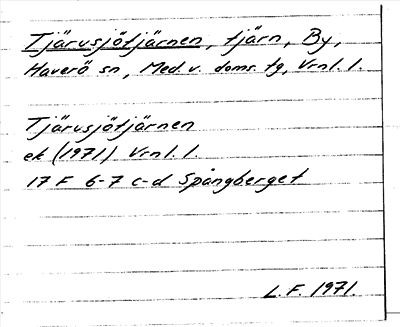 Tjärusjötjärnen, tjärn, By,
Haverö sn, Med. v. doms. tg, Vrnl. l.
Tjärusjötjärnen
ek (1971) Vrnl. l.
17 F 6-7 c-d Spångberget
L. F. 1971.